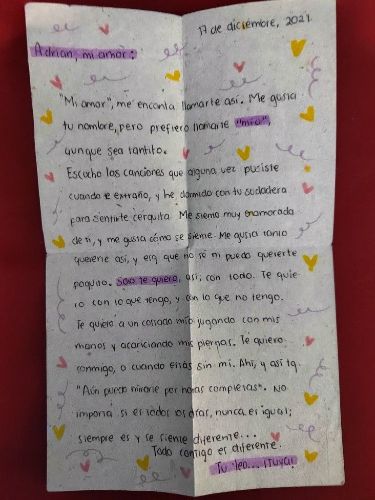 17 de diciembre, 2021
Adrian, mi amor:
"Mi amor", me encanta llamarte así. Me gusta
tu nombre, pero prefiero llamarte "mío",
aunque sea tantito.
Escucho las canciones que alguna vez pusiste
cuando te extraño, y he dormido con tu sudadera
para sentirte cerquita. Me siento muy enamorada
de ti, y me gusta cómo se siente. Me gusta tanto
quererte así, y esq que no sé ni puedo quererte
poquito. Solo te quiero, así, con todo. Te quie-
ro con lo que tengo, y con lo que no tengo.
Te quiero a un costado mío jugando con mis
manos y acariciando mis piernas. Te quiero
conmigo, o cuando estás sin mi. Ahí, y así tq.
"Aún puedo mirarte por horas completas". No
importa si es todos los días, nunca es igual;
siempre es y se siente diferente...
Todo contigo es diferente.
Tu ¡Tuya!